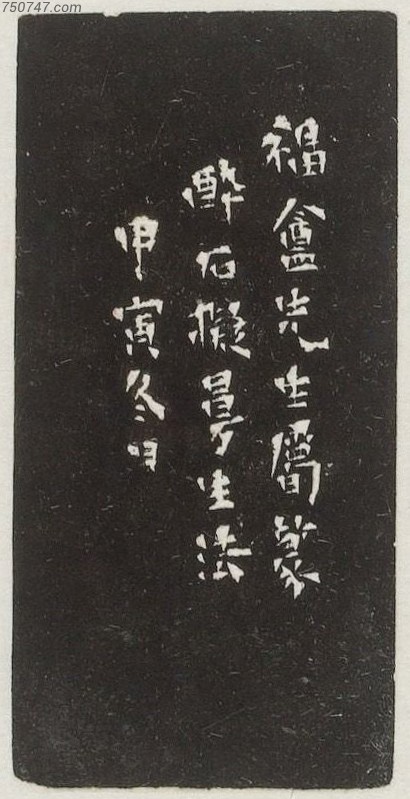 750747.com
福盦先生属篆
醉石擬曼生法
甲寅冬日